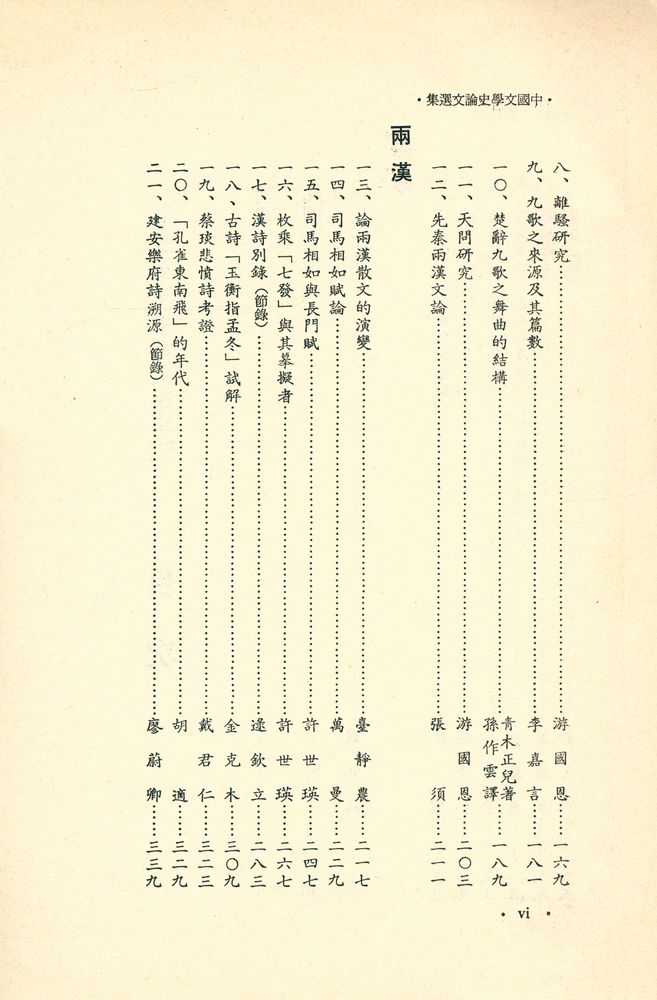 ·中國文學史論文選集·
八、離騷研究……游國恩……一六九
九、九歌之來源及其篇數……李嘉言……一八一
一〇、楚辭九歌之舞曲的結構……青木正兒著 孫作雲譯……一八九
一一、天問研究……游國恩……二〇三
一二、先秦兩漢文論……張須……二一一
兩漢
一三、論兩漢散文的演變……臺靜農……二一七
一四、司馬相如賦論……萬曼……二二九
一五、司馬相如與長門賦……許世瑛……二四七
一六、枚乘「七發」與其摹擬者……許世瑛……二六七
一七、漢詩別錄(節錄)……逯欽立……二八三
一八、古詩「玉衡指孟冬」試解……金克木……三〇九
一九、蔡琰悲憤詩考證……戴君仁……三二三
二〇、「孔雀東南飛」的年代……胡適……三二九
二一、建安樂府詩溯源(節錄)……廖蔚卿……三三九
· vi ·